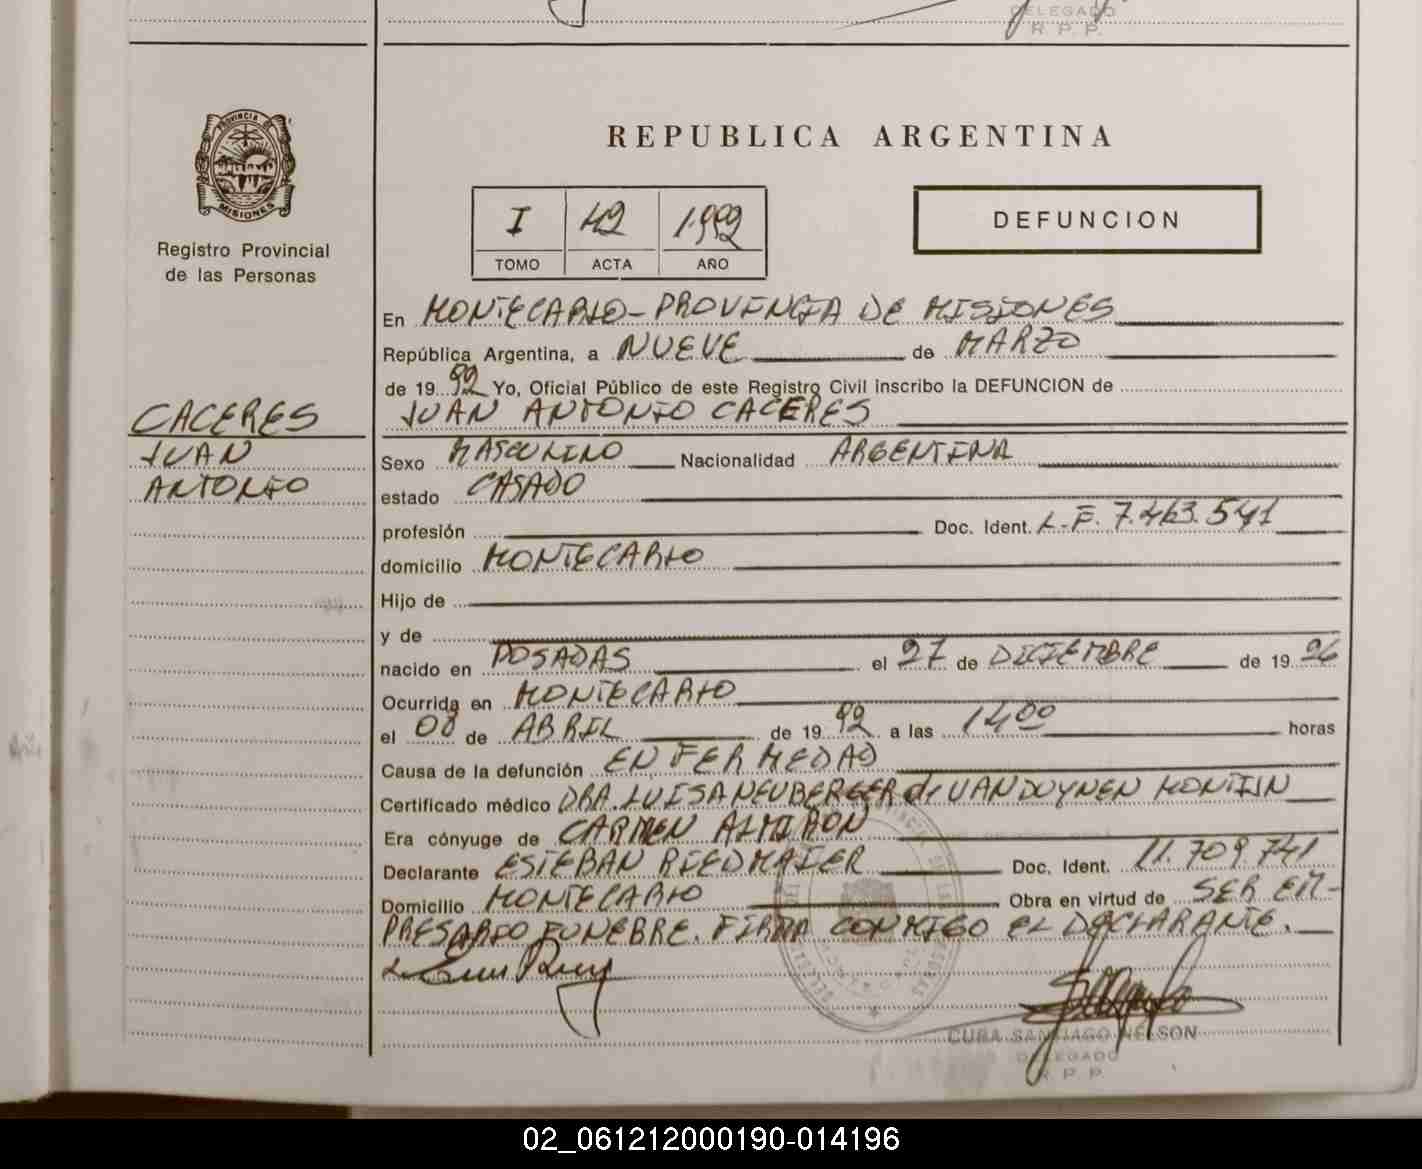 DELEGADO
R. P. P.
PROVINCIA DE
MISIONES
Registro Provincial
de las Personas
REPUBLICA ARGENTINA
I 42 1.992
TOMO ACTA AÑO
DEFUNCION
En MONTECARLO - PROVINCIA DE MISIONES
República Argentina, a NUEVE de MARZO
de 19 92 Yo, Oficial Público de este Registro Civil inscribo la DEFUNCION de
CACERES
JUAN ANTONIO CACERES
JUAN
Sexo MASCULINO Nacionalidad ARGENTINA
ANTONIO
estado CASADO
profesión Doc. Ident. L.E. 7.463.541
domicilio MONTECARLO
Hijo de
y de
nacido en POSADAS el 27 de DICIEMBRE de 19 26
Ocurrida en MONTECARLO
el 08 de ABRIL de 19 92 a las 14.00 horas
Causa de la defunción ENFERMEDAD
Certificado médico DRA. LUISA NEUBERGER de VANDOYNEN MONTIJN
Era cónyuge de CARMEN ALMIRON
Declarante ESTEBAN RIEDMAIER Doc. Ident. 11.709.741
Domicilio MONTECARLO Obra en virtud de SER EM-
PRESARIO FUNEBRE. FIRMA CONMIGO EL DECLARANTE.
CUBA SANTIAGO NELSON
DELEGADO
R. P. P.
02_061212000190-014196